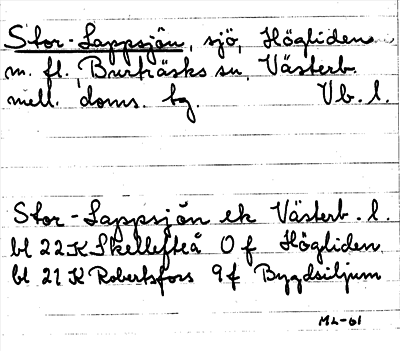 Stor-Lappsjön, sjö, Högliden
m. fl., Burträsks sn, Västerb.
mell. doms. hg. Vb. l.
Stor-Lappsjön ek Västerb. l.
bl 22K Skellefteå 0 f Högliden
bl 21 K Robertsfors 9 f Bygdsiljum
ML-61